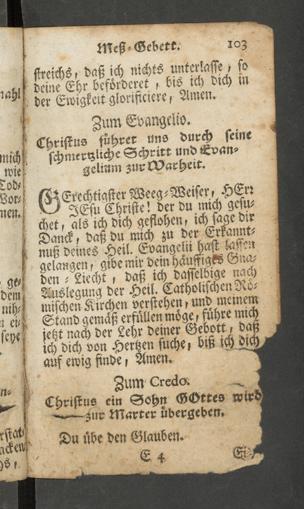 Meß-Gebett. 103
streichs, daß ich nichts unterlasse, so
deine Ehr beförderet, bis ich dich in
der Ewigkeit glorificiere, Amen.
Zum Evangelio.
Christus führet uns durch seine
schmertzliche Schritt und Evan-
gelium zur Warheit.
GErechtigster Weeg-Weiser, HErr
JEsu Christe! der du mich gesu-
chet, als ich dich geflohen, ich sage dir
Danck, daß du mich zu der Erkannt-
nuß deines Heil. Evangelii hast lassen
gelangen, gibe mir dein häuffiges Gna-
den-Liecht, daß ich dasselbige nach
Auslegung der Heil. Catholischen Rö-
mischen Kirchen verstehen, und meinem
Stand gemäß erfüllen möge, führe mich
jetzt nach der Lehr deiner Gebott, daß
ich dich von Hertzen suche, biß ich dich
auf ewig finde, Amen.
Zum Credo.
Christus ein Sohn GOttes wird
zur Marter übergeben.
Du übe den Glauben.
E 4